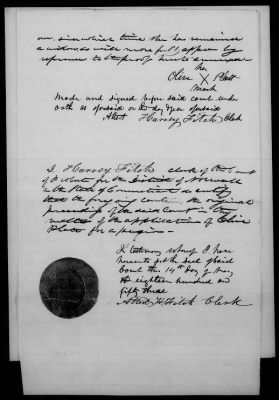 one, since which time she has remained
a widow as will more fully appear by
reference to the proof hereto annexed
her
Clive X Platt
mark
Made and signed before said court under
oath as aforesaid on the day of aforesaid
Attest Harvey Fitch Clerk
I Harvey Fitch clerk of the court
of Probate for the district of Norwalk
in the State of Connecticut do certify
that the foregoing contain the original
proceedings of the said court in the
matter of the application of Clive
Platt for a pension
In testimony whereof I have
hereunto put the seal of said
Court this 14th Day of May
AD eighteen hundred and
fifty three
Attest H. Fitch Clerk